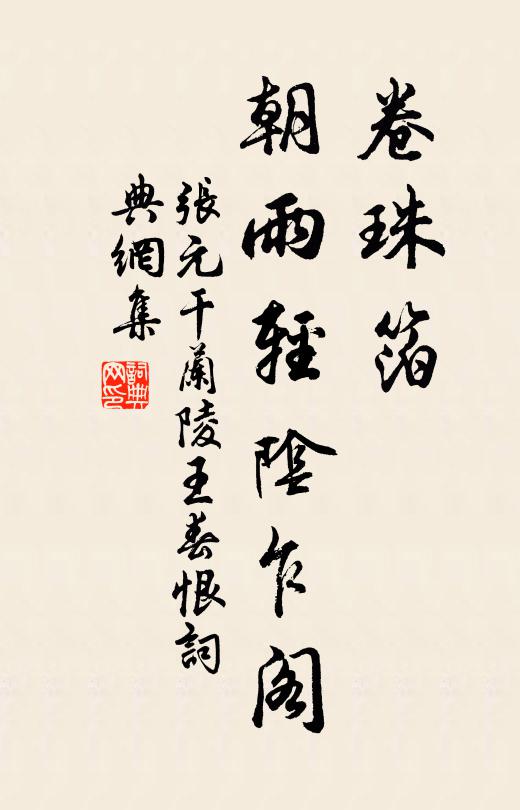 卷珠箔
朝雨輕陰乍閣
張元干蘭陵王春恨詞
典網集
詞典网印